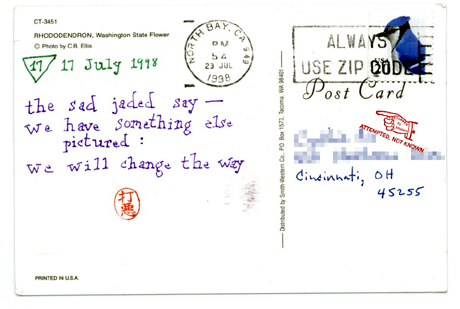 CT-3451
RHODODENDRON, Washington State Flower
© Photo by C.B. Ellis
17 17 July 1998
the sad jaded say —
we have something else
pictured :
we will change the way
打
悪
PRINTED IN U.S.A.
Distributed by Smith-Western Co., P.O. Box 1573, Tacoma, WA 98401
NORTH BAY, CA 949
PM
23 JUL
1998
ALWAYS
USE ZIP CODE
20
Post Card
ATTEMPTED, NOT KNOWN
Cincinnati, OH
45255